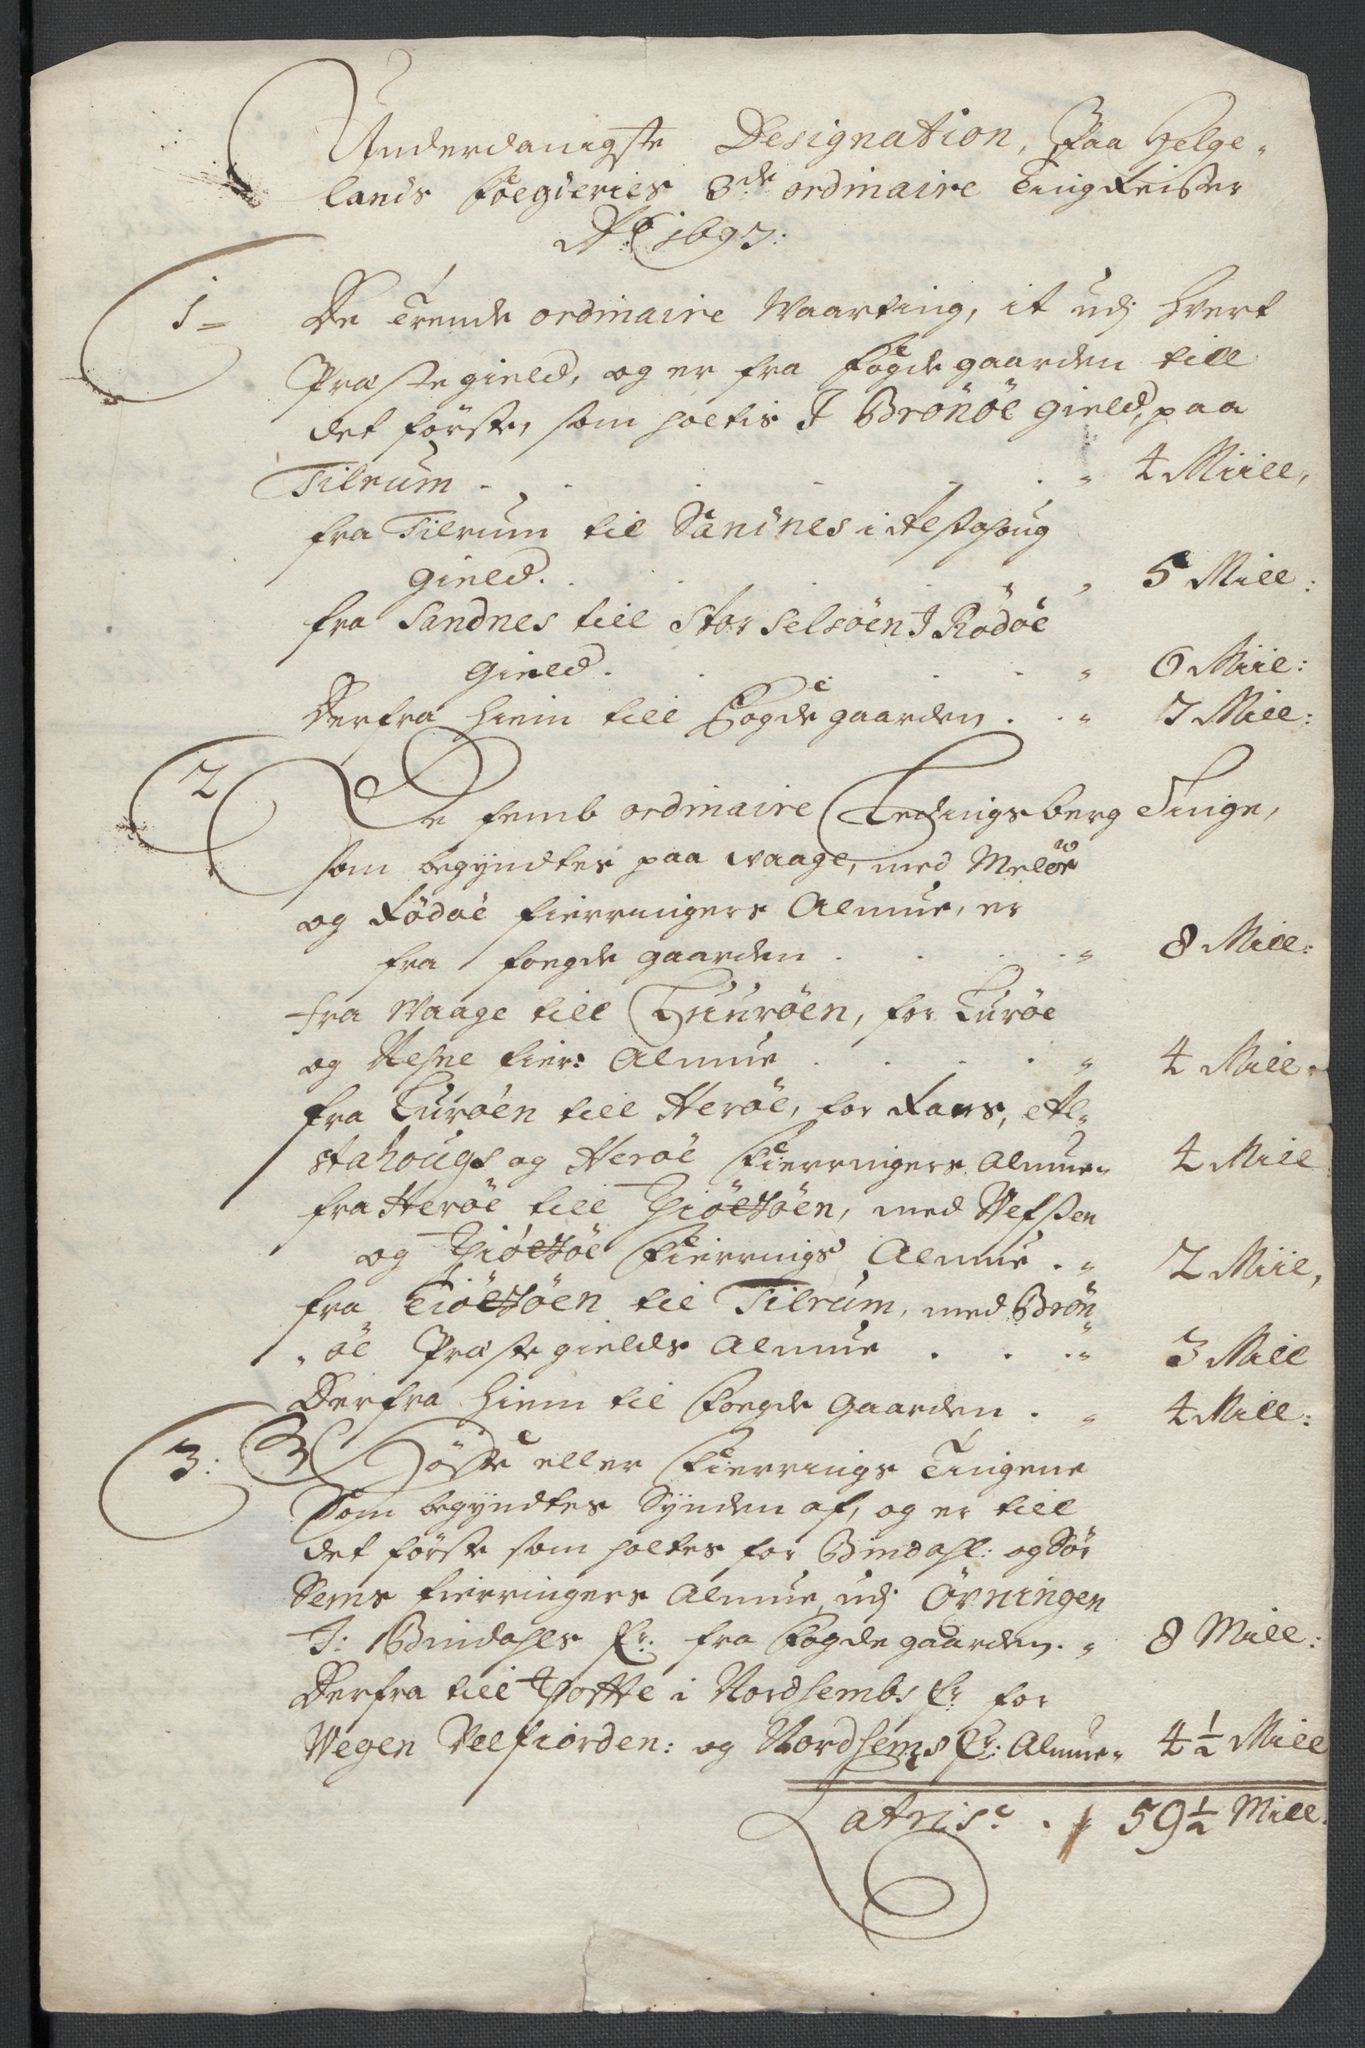 Underdanigste Designation, Paa Helge-
lands Foegderies 3de ordinaire Ting Reiser
Ao 1697:
1 De Trende ordinaire Waarting, it udj hvert
Præstegield, og er fra Fogde gaarden till
det første, som holtis J Brönöe gield, paa
Tilrum . . . . . " 4 Miill,
fra Tilrum til Sandnes i Alstahoug
gield. . . . . " 5 Miil:
fra Sandnes till Stor Selsöen J Rödöe
gield. . . . . " 6 Miil:
Derfra hiem till Fogde gaarden . . " 7 Miil:
2 De femb ordinaire Ledingsberg Tinge,
som begyndtes paa Waage, med Melöe
og Rödöe fierringers Almue, er
fra foegde gaarden . . . . " 8 Miil:
fra Waage till Luröen, for Luröe
og Nesne fier: Almue . . . . " 4 Miil
fra Luröen till Heröe, for Rans, Al-
stahougs og Heröe Fierringers Almue " 4 Miil
fra Heröe till Thiöttöen, med Vefsen
og Thiöttöe Fierrings Almue . " 2 Miil,
fra Tiöttöen til Tilrum, med Brön
"öe Præstegields Almue . . . " 3 Miil
Derfra hiem til Foegde Gaarden . " 4 Miil:
3: Höste eller Fierrings Tingene
Som begyndtes Synden af, og er till
det förste som holtes for Bindahl: og Sör
Sems fierringers Almue, udj Övningen
J: Bindahls fr: fra Fogde gaarden. " 8 Miil:
Derfra till i Nordsembs fr: for
Wegen Velfiorden: og Nordsems fr: Almue " 4 1/2 Miil
Latris . 59 1/2 Miil.